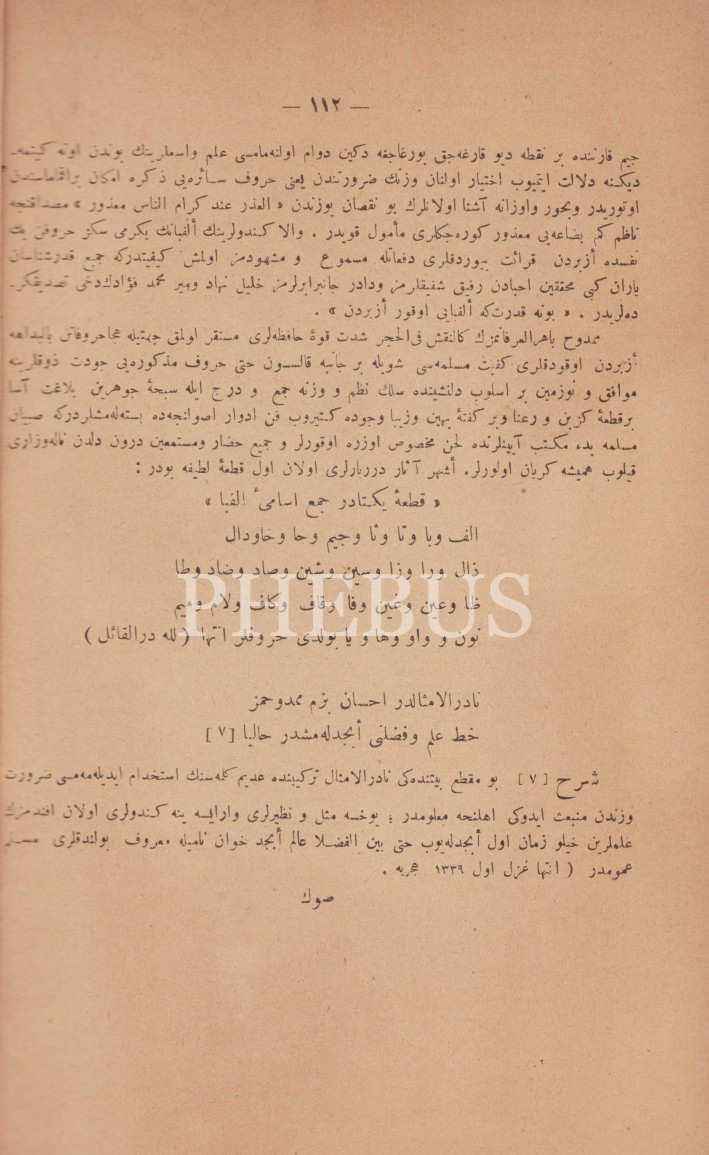 — ١١٢ —
جيم قارننده بر نقطه ديو قارغه‌جق بورغاجغه دكين دوام اولنه‌مامسى علم واسعلرينك بوندن اوته كيتمه‌ـ
ديكنه دلالت ايتميوب اختيار اولنان وزنك ضرورتندن يعنى حروف سائره‌يى ذكره امكان براقمامسندن
اوتوريدر وبحور واوزانه آشنا اولانلرك بو نقصان يوزندن « العذر عند كرام الناس معذور » مصداقنجه
ناظم كم بضاعه‌يى معذور كوره‌جكلرى مأمول قويدر . والا كندولرينك ألفبانك يكرمى سكز حروفن يك
نفسده أزبردن قرائت بيوردقلرى دفعاتله مسموع و مشهودمز اولمش كيفيتدركه جميع قدرشناسان
ياران كبى محققين احبادن رفيق شفيقلرمز ودادر جانبرابرلرمز خليل نهاد ومير محمد فؤادك‌دخى تصديقكرـ
ده‌لريدر . « بونه قدرت‌كه ألفبايى اوقور أزبردن » .
ممدوح باهرالعرفانمزك كالنقش فى‌الحجر شدت قوۀ حافظه‌لرى مستقر اولمق جهتيله هجاحروفاتن بالبداهه
أزبردن اوقودقلرى كفيت مسلمه‌سى شويله بر جانبه قالسون حتى حروف مذكوره‌يى جودت ذوقلرينه
موافق و نوزمين بر اسلوب دلنشينده سلك نظم و وزنه جمع و درج ايله سبحۀ جوهرين بلاغت آسا
برقطعۀ كزين و رعنا وبر كفتۀ بهين وزيبا وجوده كتيروب فن ادوار اصولنجه‌ده بسته‌له‌مشلردركه صبيان
مسلمه بدء مكتب آيينلرنده لحن مخصوص اوزره اوقورلر و جميع حضار ومستمعين درون دلدن ناله‌وزارى
قيلوب هميشه كريان اولورلر. أشهر آثار درربارلرى اولان اول قطعۀ لطيفه بودر :
« قطعۀ يكتادر جمع اسامئ الفبا »
الف وبا وتا وثا وجيم وحا وخاودال
ذال ورا وزا وسين وشين وصاد وضاد وطا
ظا وعين وغين وفا وقاف وكاف ولام وميم
نون و واو وها و يا بولدى حروفلر انتها ( لله درالقائل )
نادرالامثالدر احسان بزم ممدوحمز
خط علم وفضلنى أبجدله‌مشدر حاليا [ ٧ ]
شرح [ ٧ ] بو مقطع بيتنده‌كى نادرالامثال تركيبنده عديم كلمه‌سنك استخدام ايديله‌مه‌مسى ضرورت
وزندن منبعث ايدوكى اهلنجه معلومدر ؛ يوخسه مثل و نظيرلرى وارايسه ينه كندولرى اولان افندمزك
علملرين خيلو زمان اول أبجدله‌يوب حتى بين الفضلا عالم أبجد خوان ناميله معروف بولندقلرى مسلم
عمومدر ( انتها غزل اول ١٣٣٩ هجريه .
صوك
PHEBUS